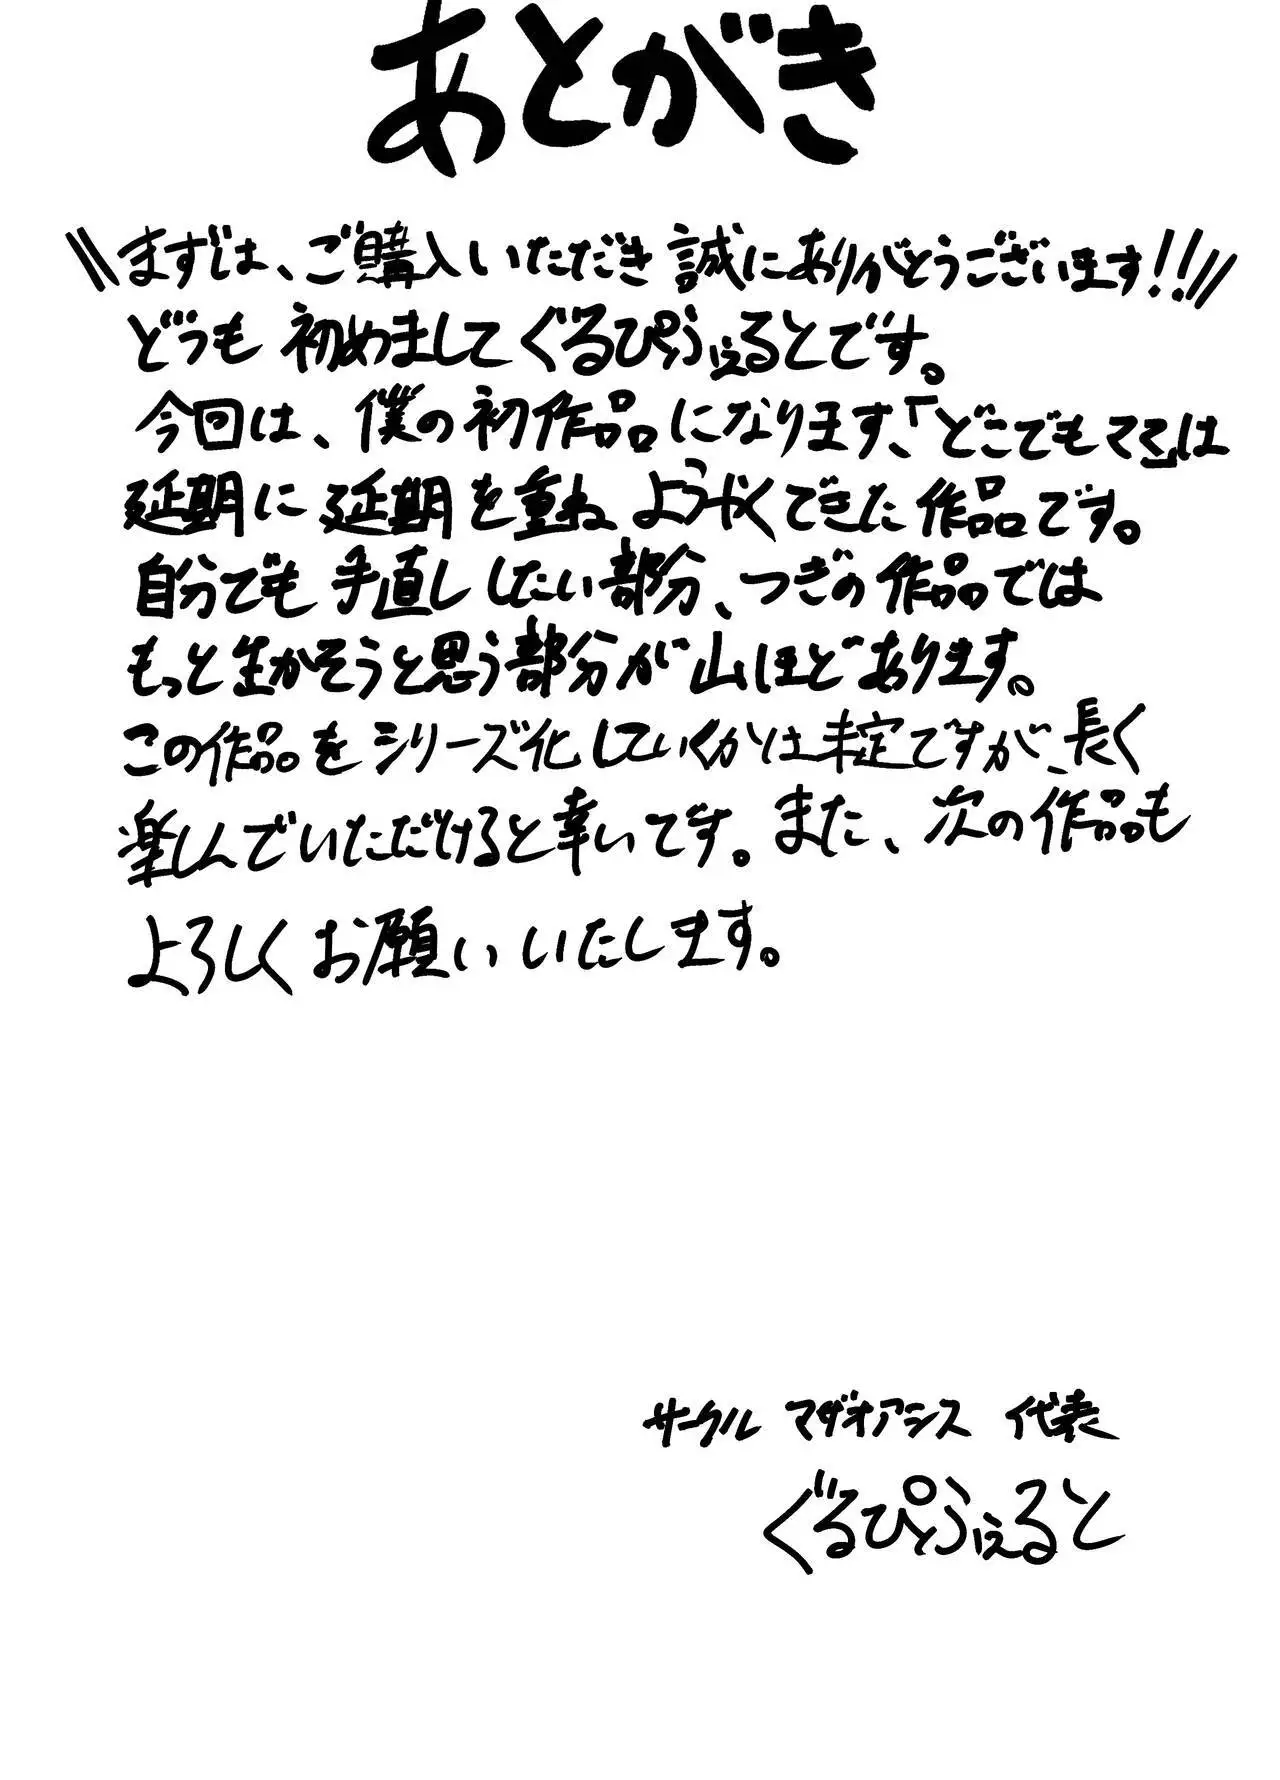 あとがき
\\まずは、ご購入いただき誠にありがとうございます!!//
どうも初めましてぐるぴょふぇるとです。
今回は、僕の初作品になります、「どこでもママ」は
延期に延期を重ねようやくできた作品です。
自分でも手直ししたい部分、つぎの作品では
もっと生かそうと思う部分が山ほどあります。
この作品をシリーズ化していくかは未定ですが、長く
楽しんでいただけると幸いです。また、次の作品も
よろしくお願いいたします。
サークル マザオアシス 代表
ぐるぴょふぇると